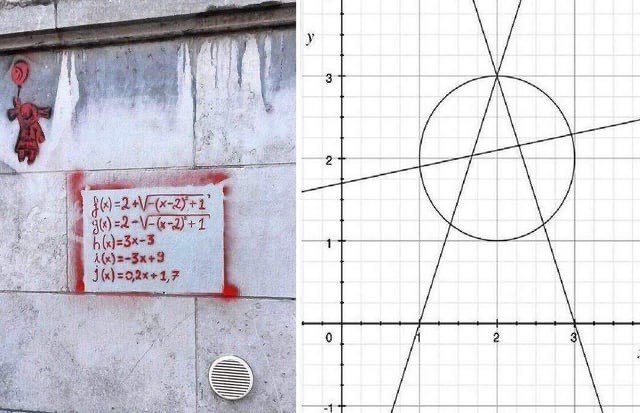 f(x)=2+√-(x-2)²+1
g(x)=2-√-(x-2)²+1
h(x)=3x-3
i(x)=-3x+9
j(x)=0,2x+1,7
y
3
2
1
0 1 2 3
-1